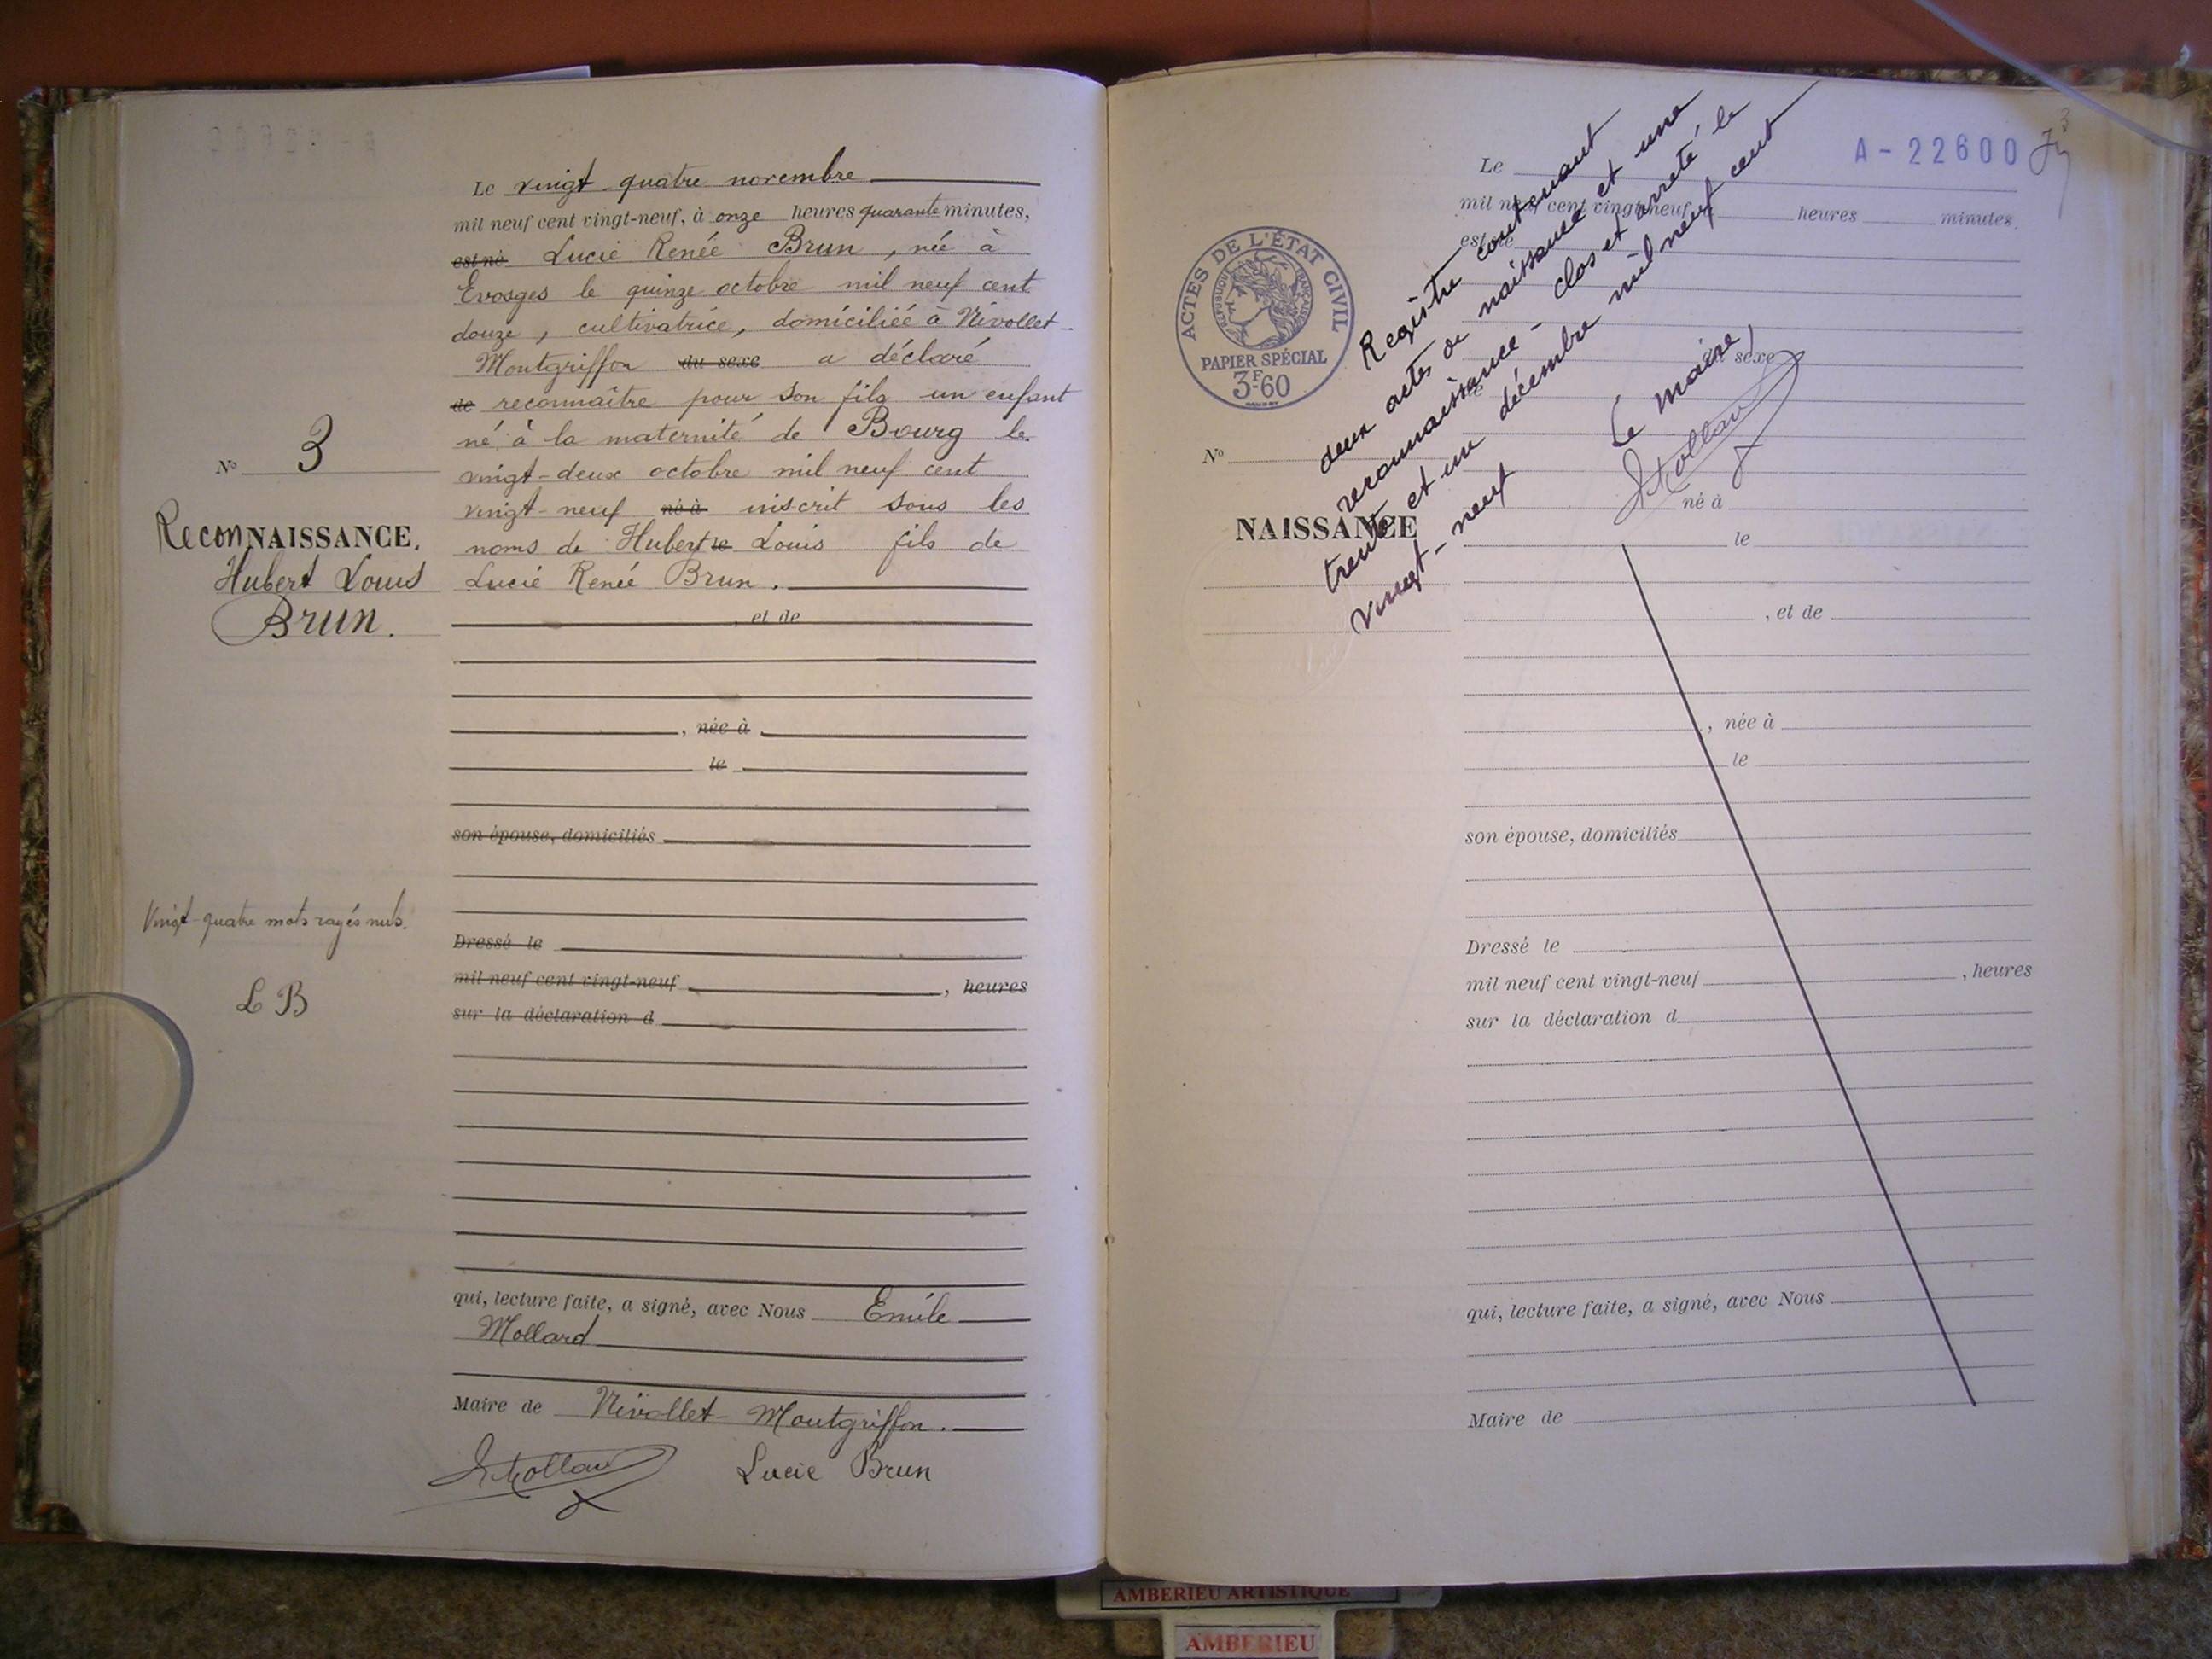 Le vingt quatre novembre
mil neuf cent vingt-neuf, à onze heures quarante minutes,
est né Lucie Renée Brun, née à
Evosges le quinze octobre mil neuf cent
douze, cultivatrice, domiciliée à Nivollet-
Montgriffon du sexe a déclaré
de reconnaître pour son fils un enfant
né à la maternité de Bourg le
vingt-deux octobre mil neuf cent
vingt-neuf né à inscrit sous les
noms de Hubert le Louis fils de
Lucie Renée Brun.
, et de
, née à
le
son épouse, domiciliés
Dressé le
mil neuf cent vingt-neuf , heures
sur la déclaration d
qui, lecture faite, a signé, avec Nous Emile
Mollard
Maire de Nivollet-Montgriffon.
Mollard Lucie Brun
N° 3
ReconNAISSANCE.
Hubert Louis
Brun.
Vingt-quatre mots rayés nuls.
L B
A-22600
3
Le
mil neuf cent vingt-neuf, heures minutes,
est né
du sexe
de
né à
le
, et de
, née à
le
son épouse, domiciliés
Dressé le
mil neuf cent vingt-neuf , heures
sur la déclaration d
qui, lecture faite, a signé, avec Nous
Maire de
ACTES DE L'ÉTAT CIVIL
RÉPUBLIQUE FRANÇAISE
PAPIER SPÉCIAL
3F60
N°
NAISSANCE
Registre contenant
deux actes de naissance et une
reconnaissance - clos et arrêté le
trente et un décembre mil neuf cent
vingt-neuf
Le maire,
Mollard
AMBERIEU ARTISTIQUE
AMBERIEU